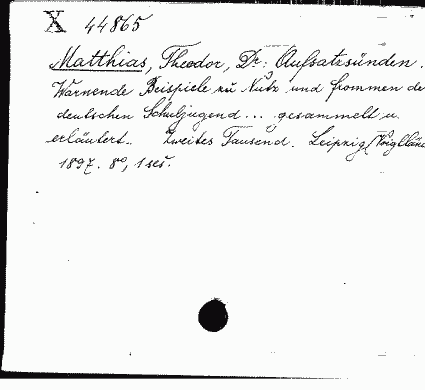 X 44865
Matthias, Theodor, Dr: Aufsatzsünden.
Warnende Beispiele zu Nutz und frommen de
deutschen Schuljugend ... gesammelt u.
erläutert. Zweites Tausend. Leipzig, Voigtländ
1897. 8°, 1 ses.